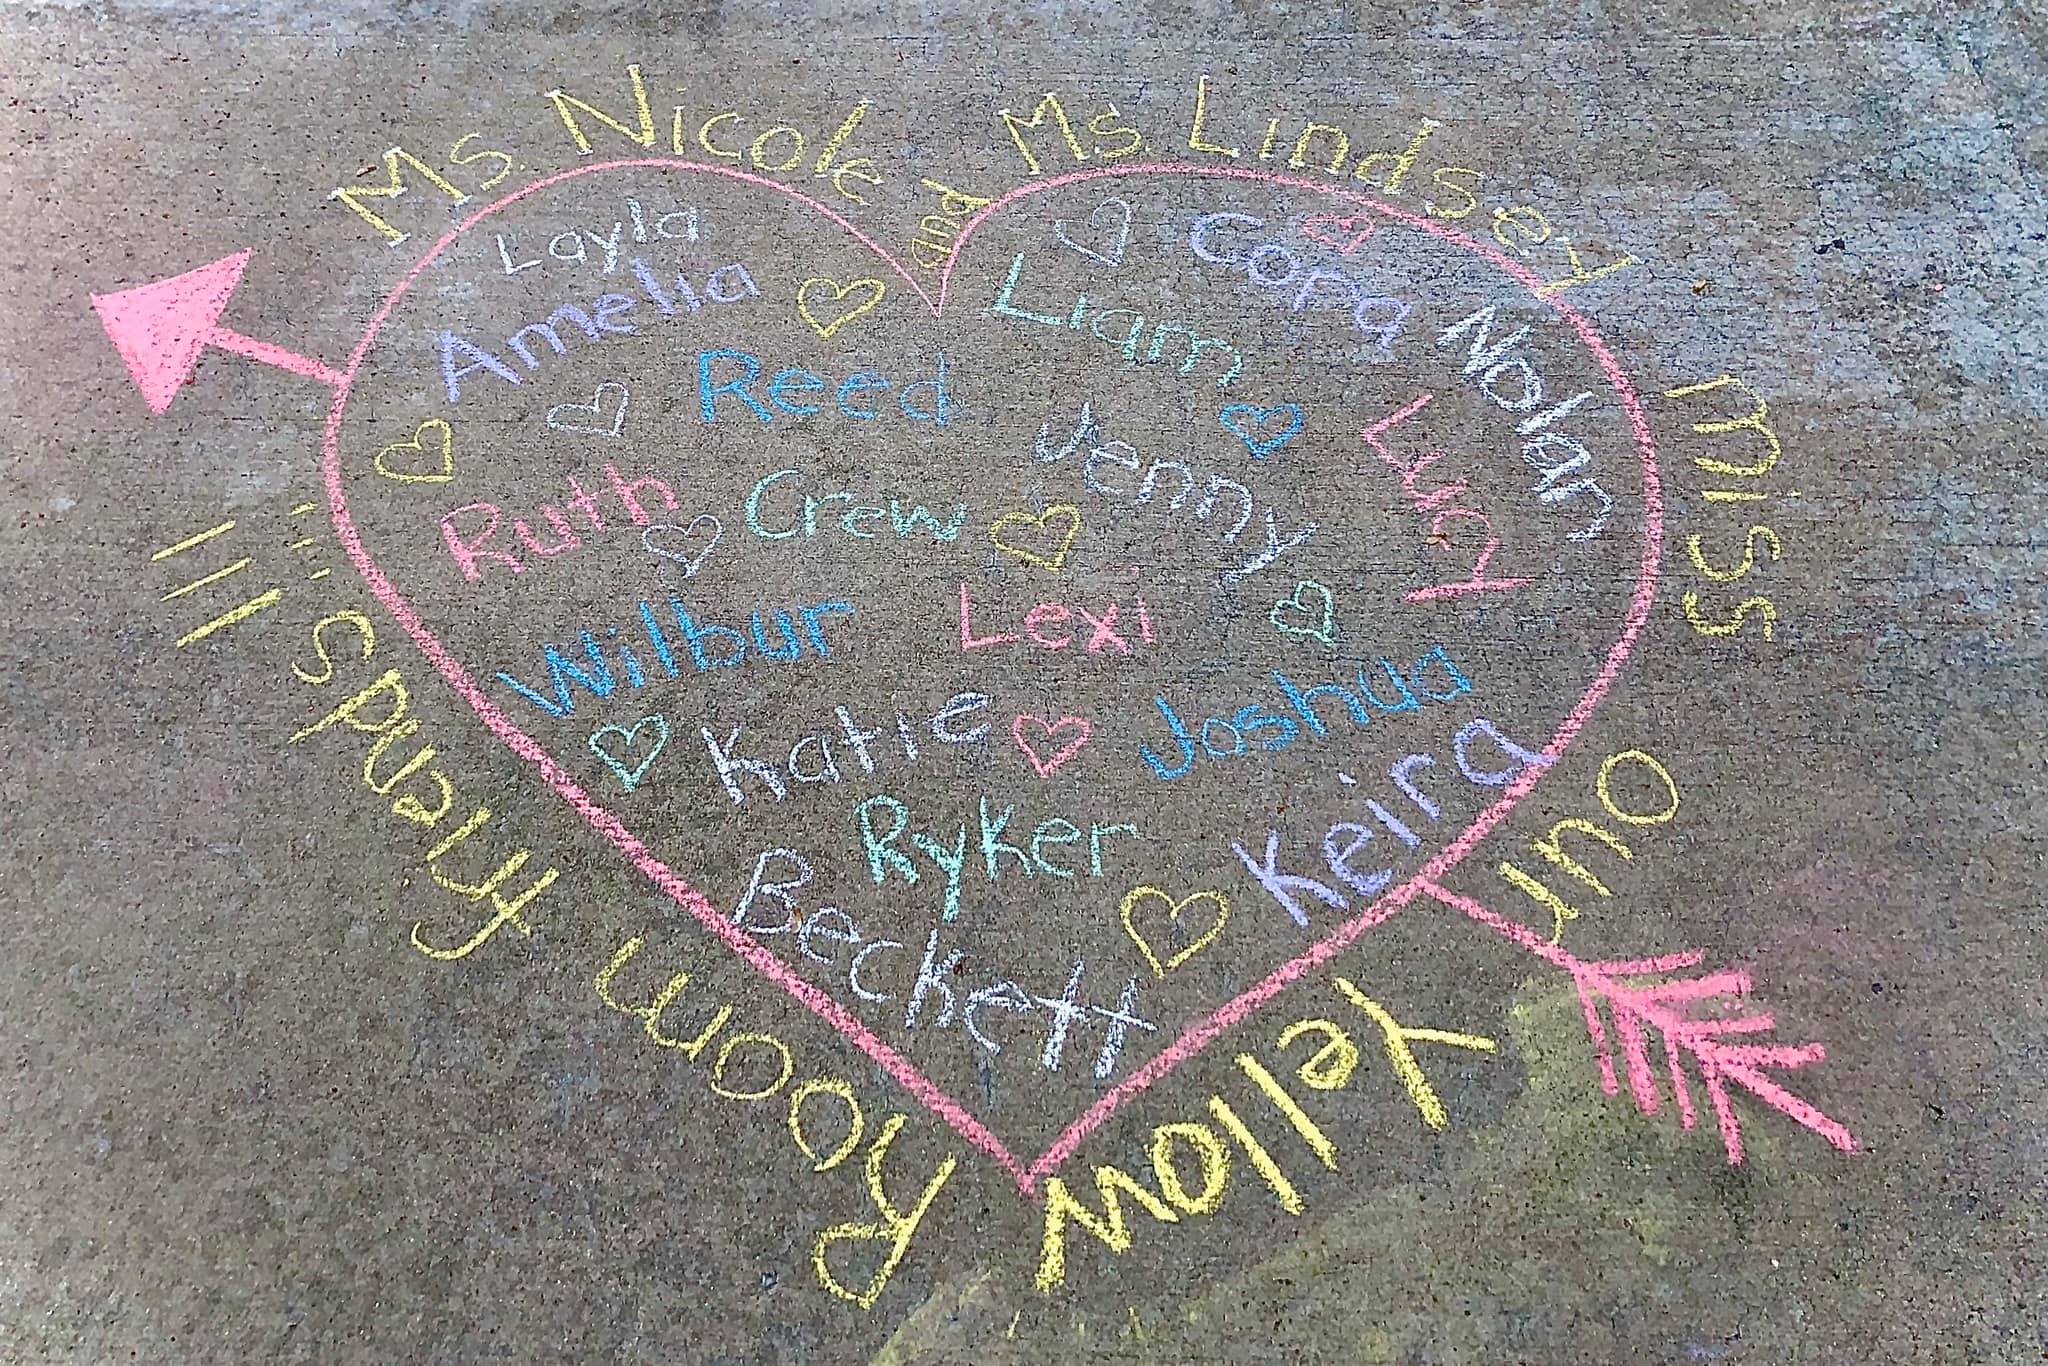 Ms. Nicole and Ms Lindsey miss our Yellow Room friends!!!
Layla
Amelia
Reed
Ruth
Crew
Liam
Cora
Nolan
Jenny
Lucy
Wilbur
Lexi
Katie
Joshua
Ryker
Keira
Beckett